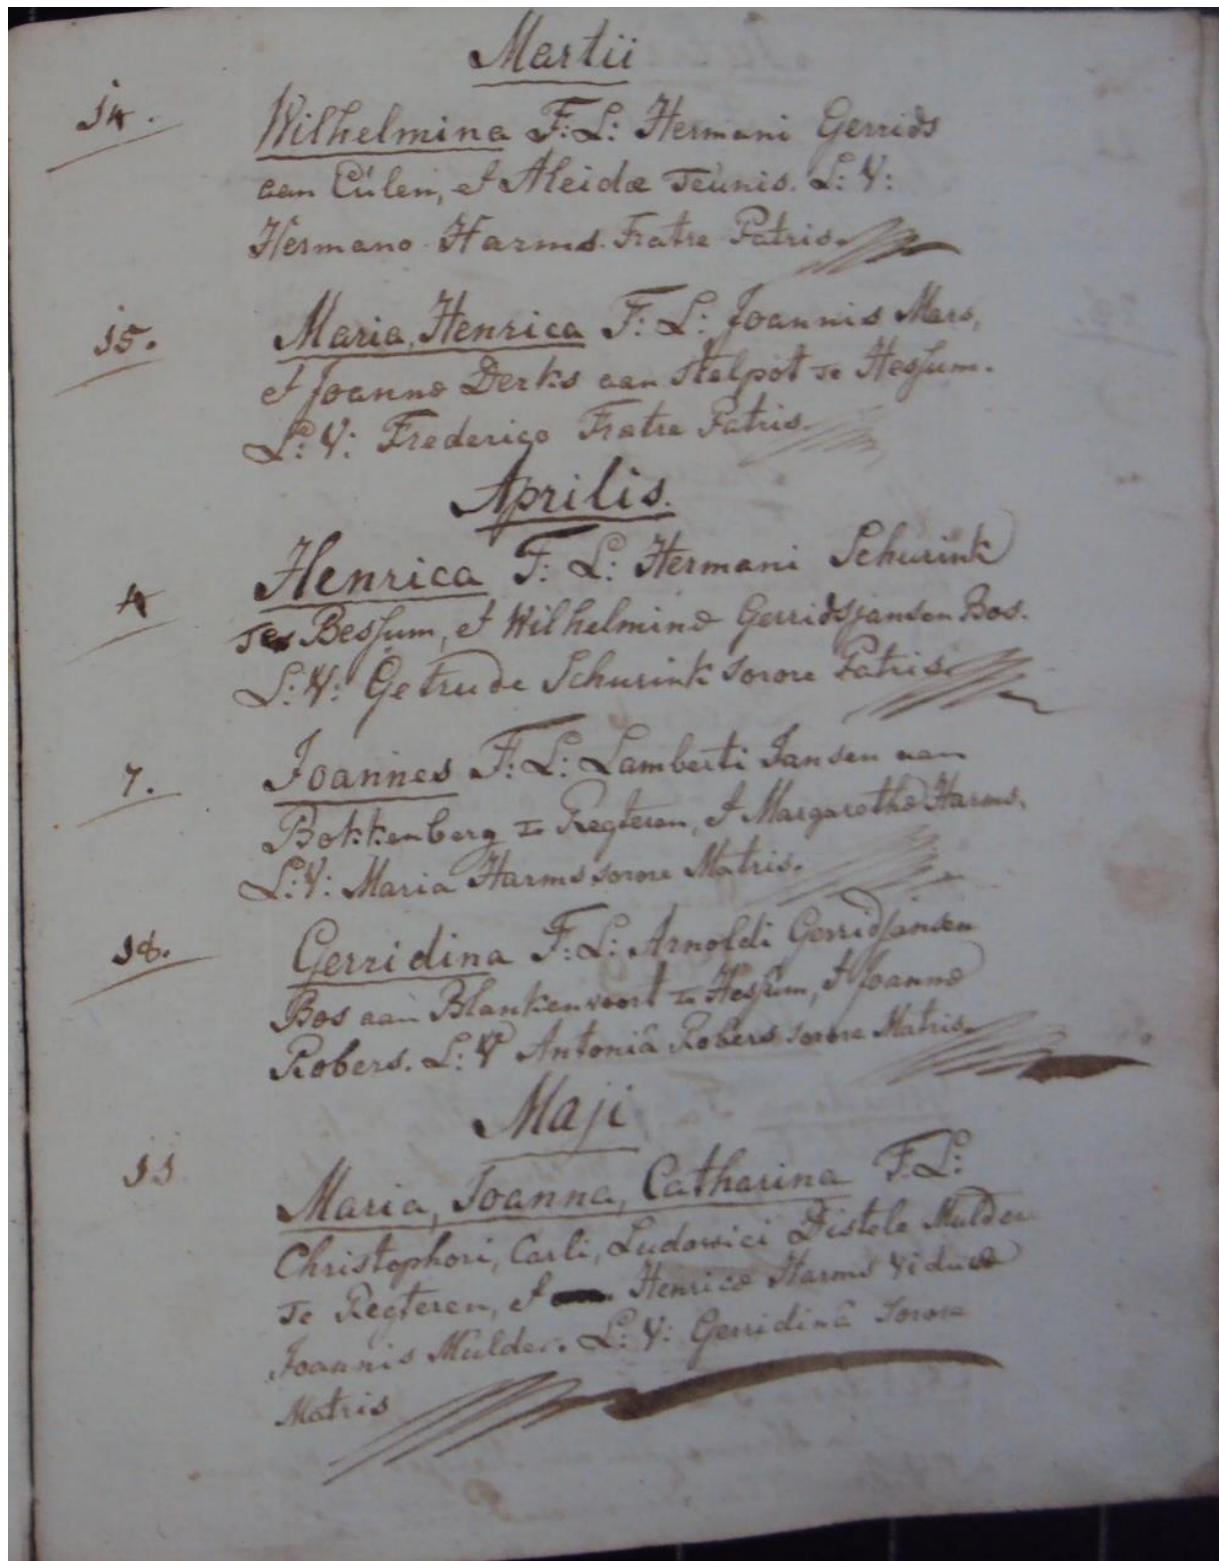 Martii
14. Wilhelmina F: L: Hermani Gerrids
aan Eúlen, et Aleidæ Teúnis. L: V:
Hermano Harms Fratre Patris.
15. Maria, Henrica F: L: Joannis Mars,
et Joannæ Derks aan Stelpot te Hessum.
L: V: Frederico Fratre Patris.
Aprilis.
4 Henrica F: L: Hermani Schurink
te Bessum, et Wilhelminæ Gerridsjansen Bos.
L: V: Getrude Schurink sorore Patris.
7. Joannes F: L: Lamberti Jansen aan
Bokkenberg te Regteren, et Margarethæ Harms.
L: V: Maria Harms sorore Matris.
18. Gerridina F: L: Arnoldi Gerridjansen
Bos aan Blankenvoort te Hessum, et Joannæ
Robers. L: V Antoniâ Robers sorore Matris.
Maji
11 Maria, Joanna, Catharina F: L:
Christophori, Carli, Ludovici Distele Mulder
te Regteren, et Henricæ Harms Viduæ
Joannis Mulder. L: V: Gerridinâ Sorore
Matris